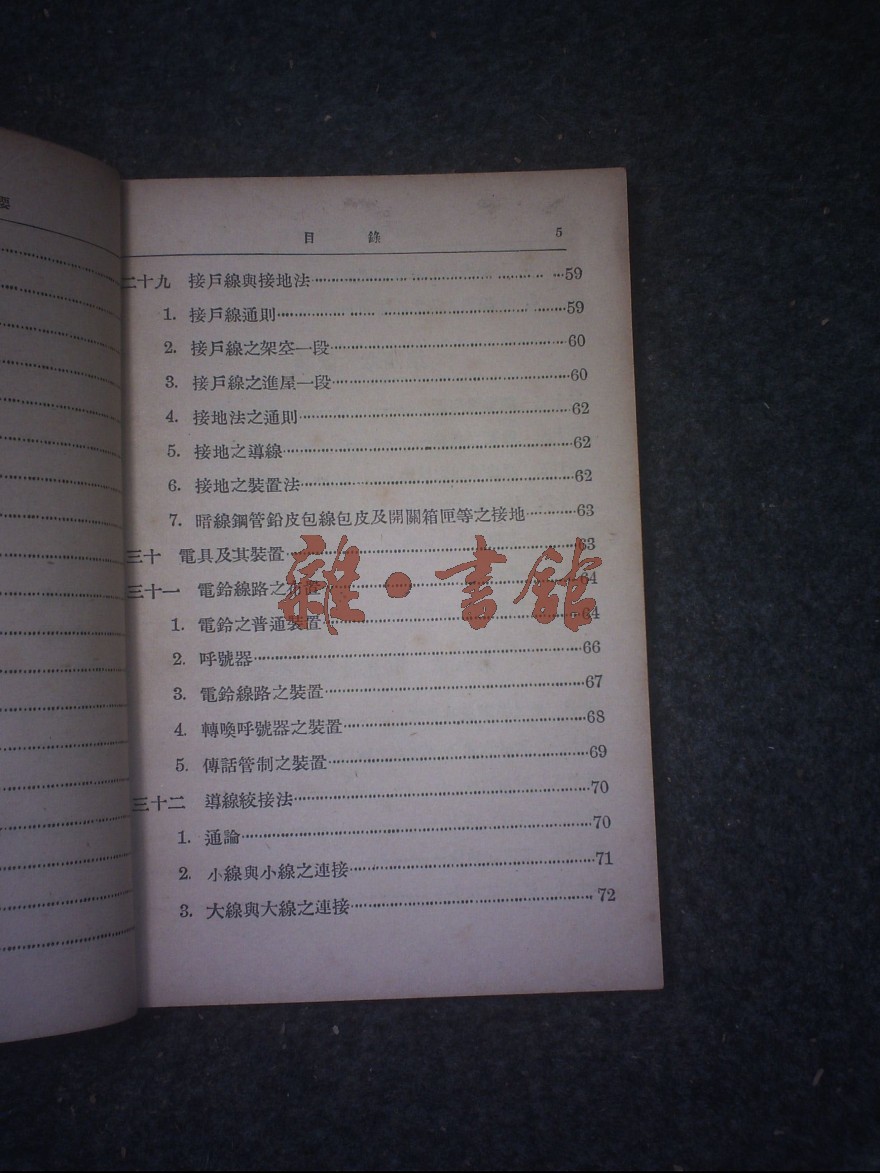 要
目 錄 5
二十九 接戶線與接地法 59
1. 接戶線通則 59
2. 接戶線之架空一段 60
3. 接戶線之進屋一段 60
4. 接地法之通則 62
5. 接地之導線 62
6. 接地之裝置法 62
7. 暗線鋼管鉛皮包線包皮及開關箱匣等之接地 63
三十 電具及其裝置 63
三十一 電鈴線路之佈置 64
1. 電鈴之普通裝置 64
2. 呼號器 66
3. 電鈴線路之裝置 67
4. 轉喚呼號器之裝置 68
5. 傳話管制之裝置 69
三十二 導線絞接法 70
1. 通論 70
2. 小線與小線之連接 71
3. 大線與大線之連接 72
雜·書館